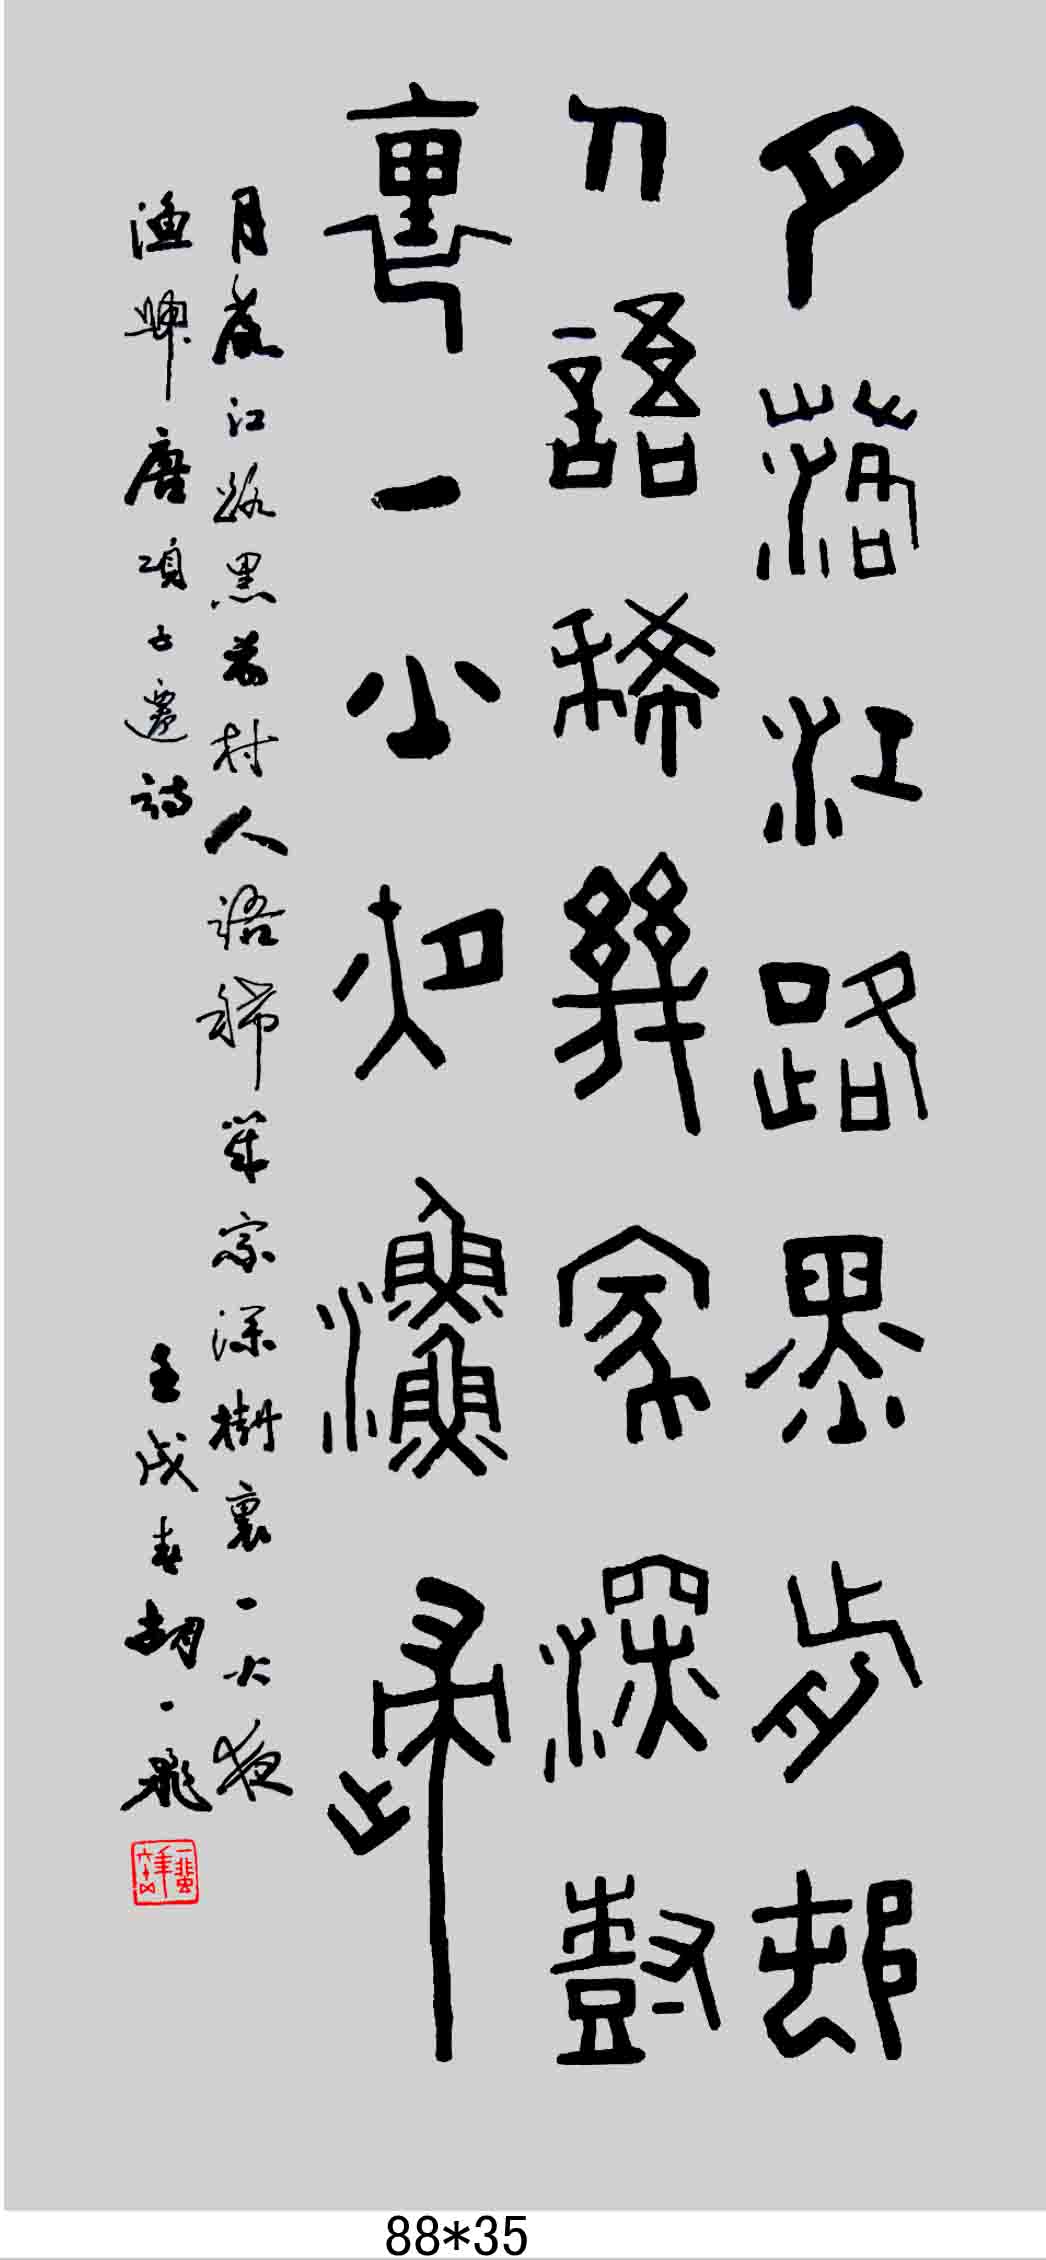 月落江路黑前邨
人語稀幾家深樹
裏一火夜漁歸
月落江路黑前村人語稀幾家深樹裏一火夜
漁歸唐項子遷詩
壬戌春胡一飛
88*35